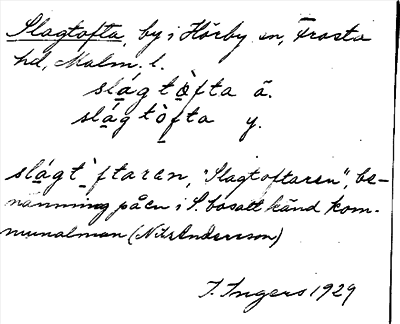 Slagtofta, by i Hörby sn, Frosta
hd, Malm. l.
slá̱gtò̱fta ä.
slá̱gtò̱fta y.
slá̱gt`ftaren, "Slagtoftaren", be-
nämning på en i S. bosatt känd kom-
munalman (Nils Andersson)
I. Ingers 1929